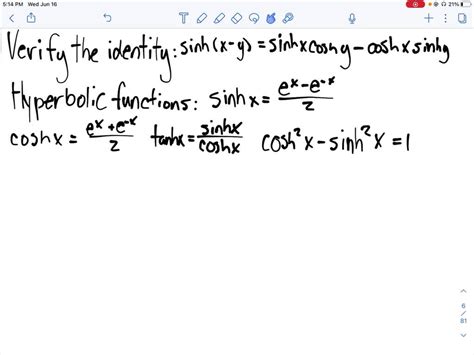 5:14 PM Wed Jun 16
21%
Verify the identity: sinh(x-y) = sinhxcoshy - coshxsinhy
Hyperbolic functions: sinhx = (e^x - e^-x)/2
coshx = (e^x + e^-x)/2 tanhx = sinhx/coshx cosh²x - sinh²x = 1
6
81